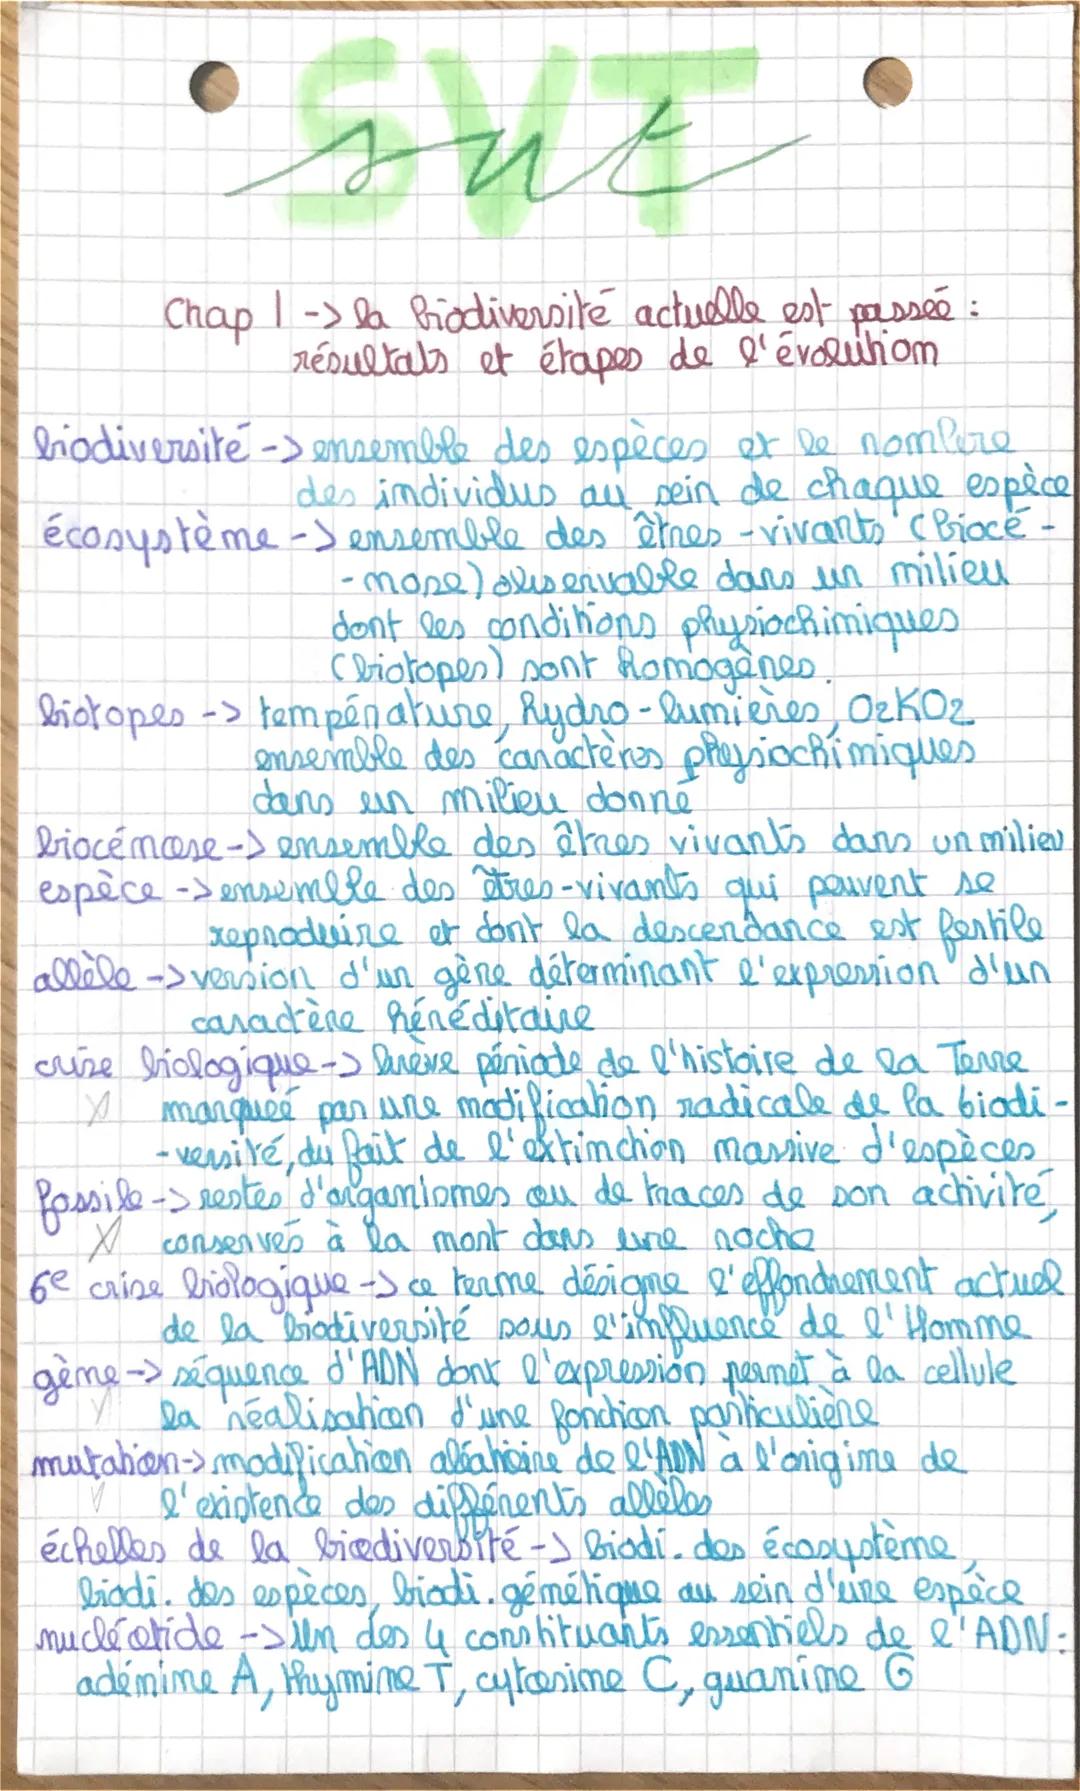 SVT
svt
Chap 1 -> la biodiversité actuelle est passée :
résultats et étapes de l'évolution
biodiversité -> ensemble des espèces et le nombre
des individus au sein de chaque espèce
écosystème -> ensemble des êtres-vivants (biocé-
-nose) observable dans un milieu
dont les conditions physiochimiques
(biotopes) sont homogènes.
biotopes -> température, hydro-lumières, O2
ensemble des caractères physiochimiques
dans un milieu donné
biocénose -> ensemble des êtres vivants dans un milieu
espèce -> ensemble des êtres-vivants qui peuvent se
reproduire et dont la descendance est fertile
allèle -> version d'un gène déterminant l'expression d'un
caractère héréditaire
crise biologique -> brève période de l'histoire de la Terre
marqueé par une modification radicale de la biodi-
-versité, du fait de l'extinction massive d'espèces
fossile -> restes d'organismes ou de traces de son activité,
conservés à la mort dans une roche
6e crise biologique -> ce terme désigne l'effondrement actuel
de la biodiversité sous l'influence de l'Homme
gène -> séquence d'ADN dont l'expression permet à la cellule
la réalisation d'une fonction particulière
mutation -> modification aléatoire de l'ADN à l'origine de
l'existence des différents allèles
échelles de la biodiversité -> biodi. des écosystème,
biodi. des espèces, biodi. génétique au sein d'une espèce
nucléotide -> Un des 4 constituants essentiels de l'ADN :
adénine A, thymine T, cytosine C, guanine G